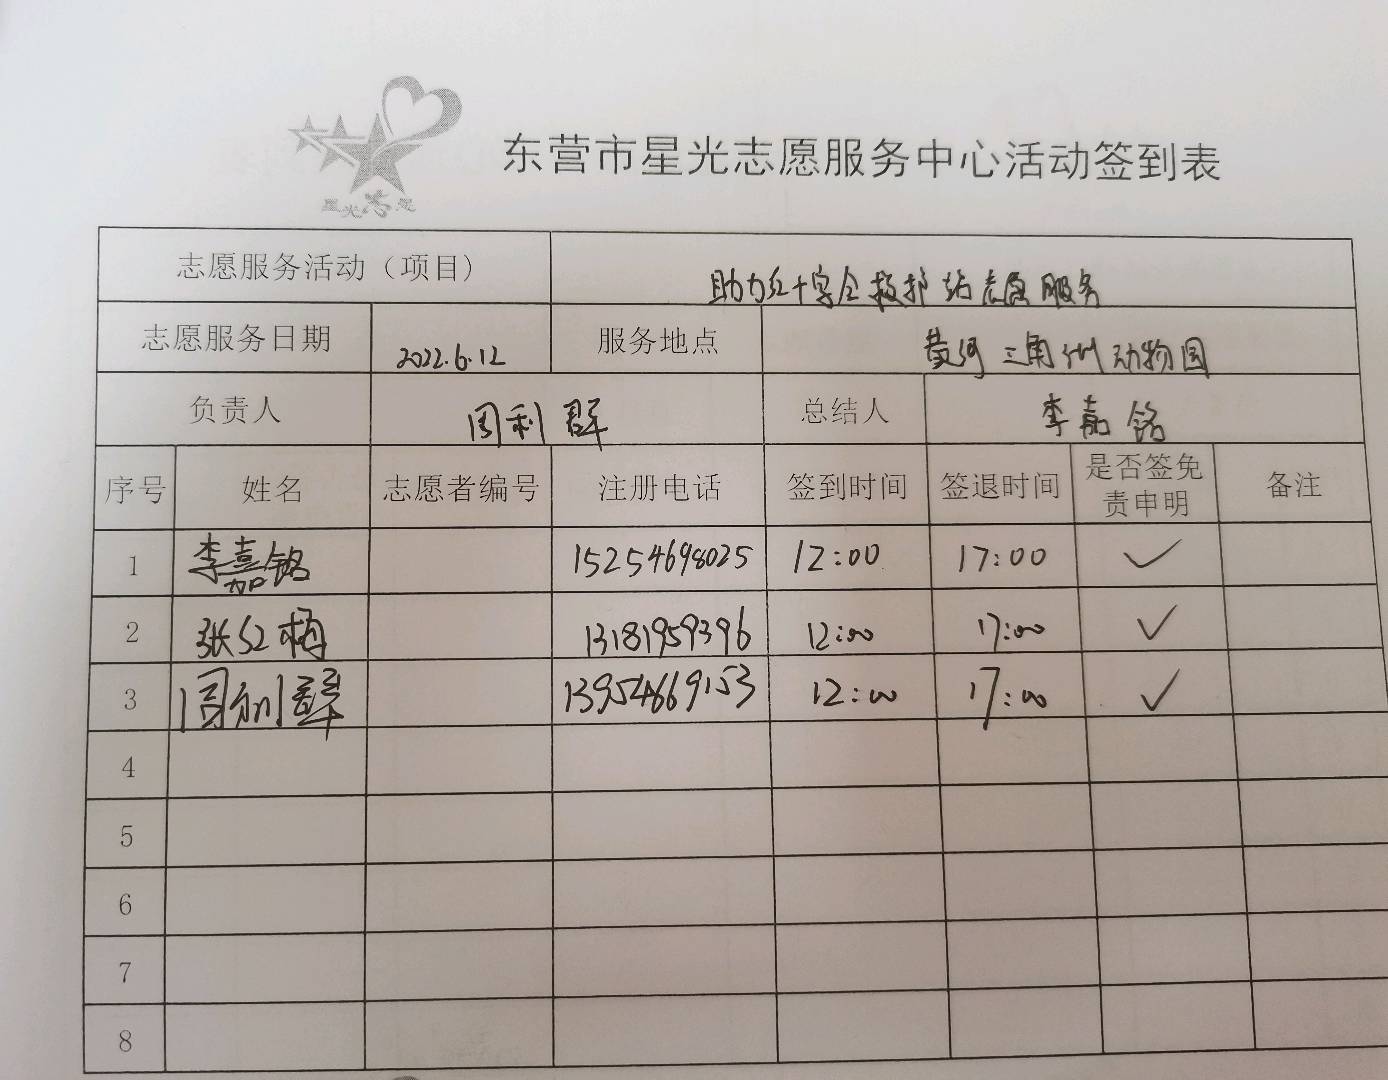 星光志愿
东营市星光志愿服务中心活动签到表
志愿服务活动（项目） 助力红十字会救护站志愿服务
志愿服务日期 2022.6.12 服务地点 黄河三角洲动物园
负责人 周利群 总结人 李嘉铭
序号 姓名 志愿者编号 注册电话 签到时间 签退时间 是否签免责申明 备注
1 李嘉铭 15254698025 12:00 17:00 ✓
2 张红梅 13181959396 12:00 17:00 ✓
3 周利群 13954669153 12:00 17:00 ✓
4
5
6
7
8